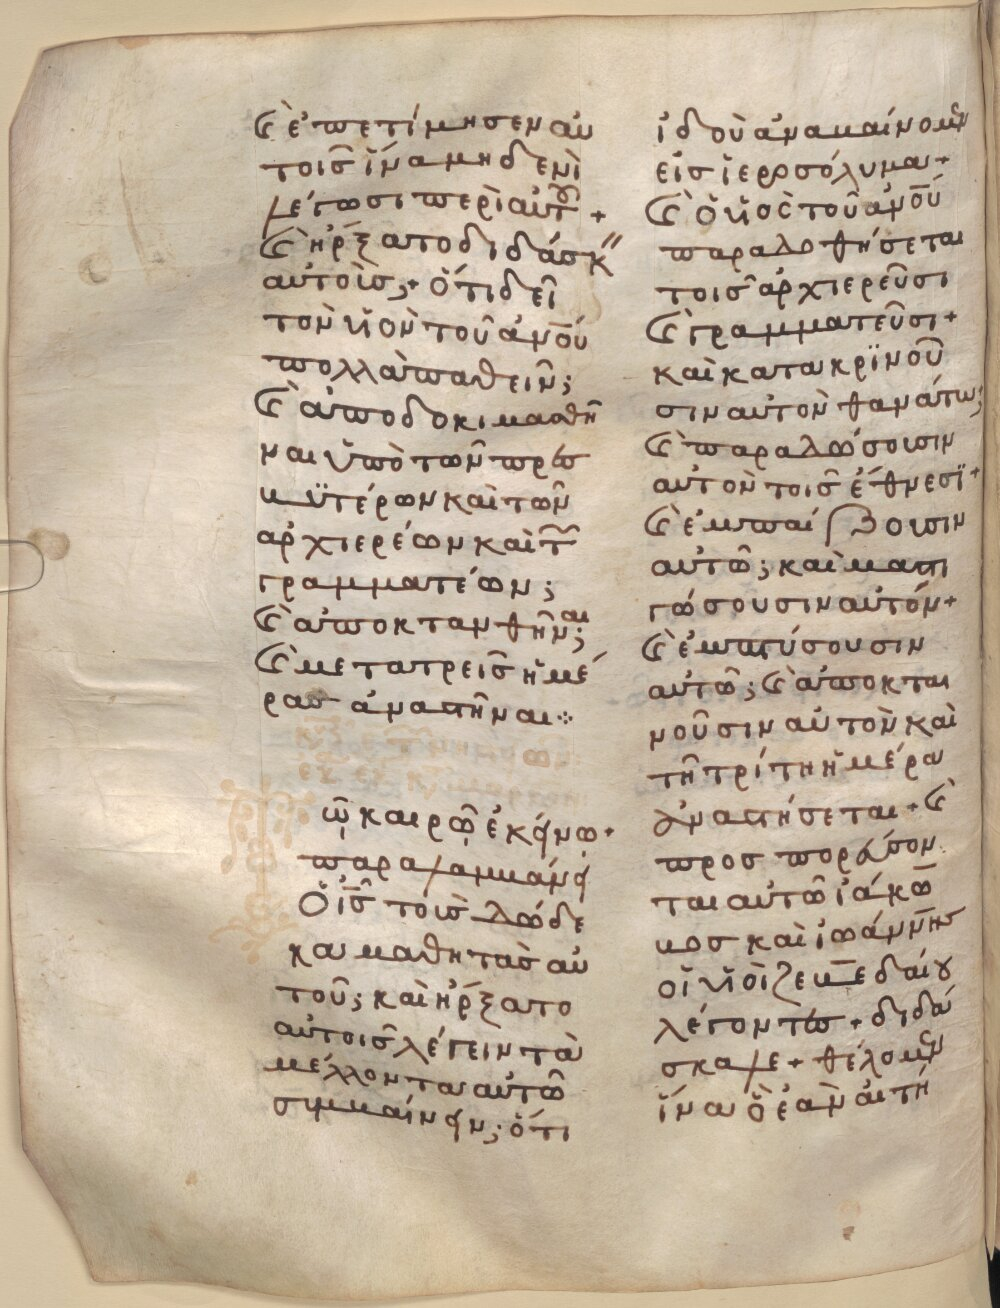 κ(αὶ) ἐπετίμησεν αὐ
τοῖς ἵνα μηδενὶ
λέγωσι περὶ αὐτ(οῦ) +
κ(αὶ) ἤρξατο διδάσκ(ειν)
αὐτοὺς; + ὅτι δεῖ
τὸν υἱὸν τοῦ ἀν̅ο̅ύ̅
πολλὰ παθεῖν;
κ(αὶ) ἀποδοκιμασθῆ
ναι ὑπὸ τῶν πρεσ
βϋτέρων καὶ τῶν
ἀρχιερέων καὶ τ(ῶν)
γραμματέων;
κ(αὶ) ἀποκτανθῆναι;
κ(αὶ) μετὰ τρεῖς ἡμέ
ρας ἀναστῆναι ⁘
Τῶ καιρῶ ἐκείνω +
παραλαμβάνει
ὁ ι̅ς̅ τοὺς δώδε
κα μαθητὰς αὐ
τοῦ; καὶ ἤρξατο
αὐτοῖς λέγειν τὰ
μέλλοντα αὐτῶ
συμβαίνειν; ὅτι
ἰδοὺ ἀναβαίνομεν
εἰς ἱεροσόλυμα +
κ(αὶ) ὁ υἱὸς τοῦ ἀν̅ο̅ύ̅
παραδοθήσεται
τοῖς ἀρχιερεῦσι
κ(αὶ) γραμματεῦσι +
καὶ κατακρϊνοῦ
σιν αὐτὸν θανάτω;
κ(αὶ) παραδώσουσιν
αὐτὸν τοῖς ἔθνεσϊ +
κ(αὶ) ἐμπαίξουσιν
αὐτῶ; καὶ μαστι
γώσουσιν αὐτόν +
κ(αὶ) ἐμπτύσουσιν
αὐτῶ; κ(αὶ) ἀποκτε
νοῦσιν αὐτὸν καὶ
τῆ τρίτη ἡμέρα
ἀναστήσεται + κ(αὶ)
προσπορεύον
ται αὐτῶ ἰάκω
βος καὶ ἰωάννης
οἱ υἱοὶ ζεβεδαίου
λέγοντες + διδά
σκαλε + θέλομεν
ἵνα ὃ ἐὰν αἰτή